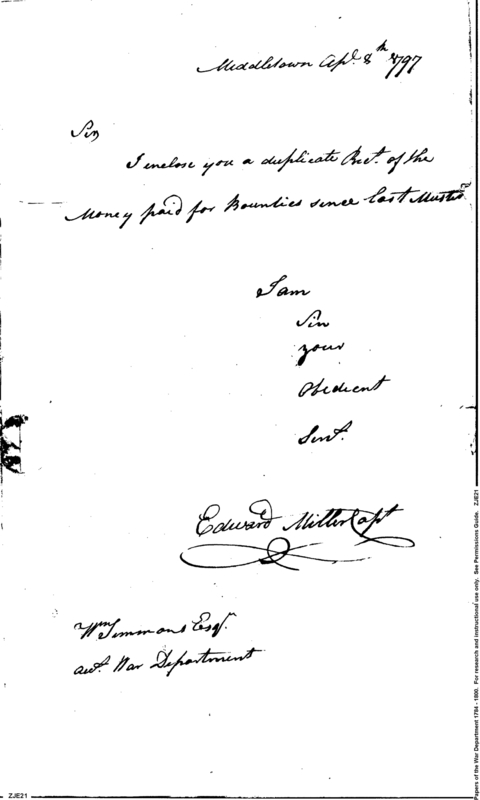 Middletown Apl. 8th 1797
Sir
I enclose you a duplicate Rect. of the
Money paid for Bounties since last Muster
I am
Sir
your
Obedient
Servt.
Edward Miller Capt
Wm Simmons Esqr.
acct. War Department
ZJE21
Papers of the War Department 1784 - 1800. For research and instructional use only. See Permissions Guide. ZJE21